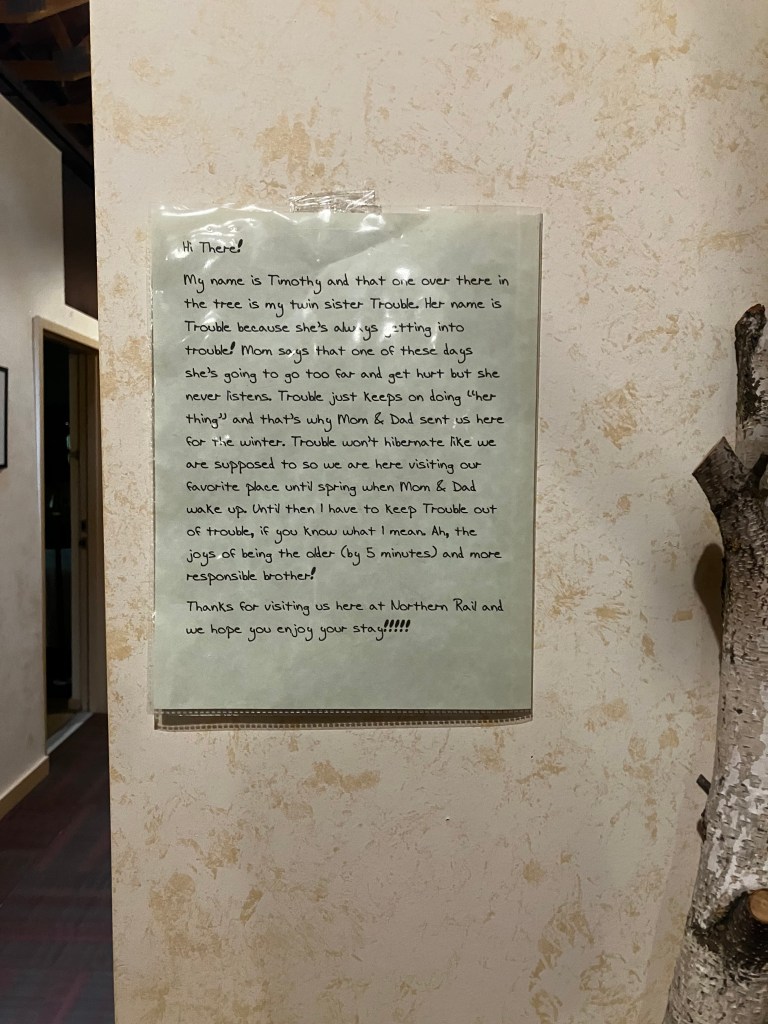 Hi There!
My name is Timothy and that one over there in
the tree is my twin sister Trouble. Her name is
Trouble because she's always getting into
trouble! Mom says that one of these days
she's going to go too far and get hurt but she
never listens. Trouble just keeps on doing "her
thing" and that's why Mom & Dad sent us here
for the winter. Trouble won't hibernate like we
are supposed to so we are here visiting our
favorite place until spring when Mom & Dad
wake up. Until then I have to keep Trouble out
of trouble, if you know what I mean. Ah, the
joys of being the older (by 5 minutes) and more
responsible brother!
Thanks for visiting us here at Northern Rail and
we hope you enjoy your stay!!!!!